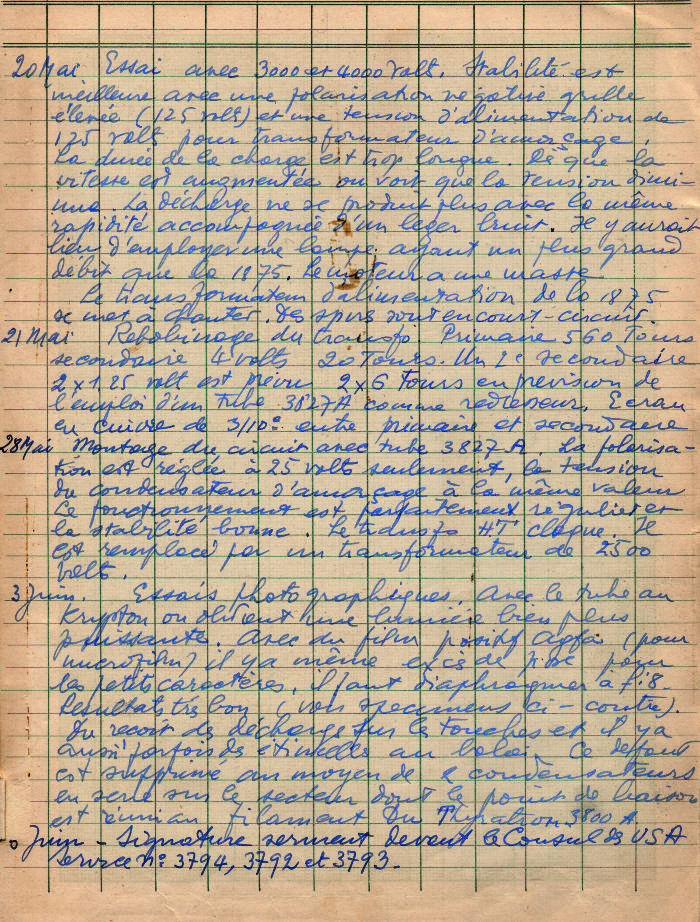 20 Mai Essai avec 3000 et 4000 volts. Stabilité est
meilleure avec une polarisation négative grille
élevée (125 volts) et une tension d'alimentation de
125 volts pour transformateur d'amorçage.
La durée de la charge est trop longue. Dès que la
vitesse est augmentée on voit que la tension dimi-
nue. La décharge ne se produit plus avec la même
rapidité accompagnée d'un léger bruit. Il y aurait
lieu d'employer une lampe ayant un plus grand
débit que la 1875. Le moteur a une masse
Le transformateur d'alimentation de la 1875
se met à chauter. Des spires sont en court-circuit.
21 Mai Rebobinage du transfo. Primaire 560 Tours
secondaire 4 volts 20 Tours. Un 2e secondaire
2 x 1.25 volt est prévu 2x6 Tours en prévision de
l'emploi d'un tube 3827A comme redresseur. Ecran
en cuivre de 3/10e entre primaire et secondaire
28 Mai Montage du circuit avec tube 3827A La polarisa-
tion est réglée à 25 volts seulement, la tension
du condensateur d'amorçage à la même valeur
Le fonctionnement est parfaitement régulier et
la stabilité bonne. Le transfo HT claque. Il
est remplacé par un transformateur de 2500
volts.
3 Juin. Essais photographiques. Avec le tube au
Krypton on obtient une lumière bien plus
puissante. Avec du film positif Agfa (pour
microfilm) il y a même excès de pose pour
les petits caractères, il faut diaphragmer à f:8.
Résultat très bon (voir specimens ci-contre).
On reçoit des décharges sur les touches et il y a
aussi parfois des étincelles au balai. Ce deffaut
est supprimé au moyen de 2 condensateurs
en série sur le secteur dont le point de liaison
est réuni au filament du Thyratron 3800 A.
Juin - Signature serment devant le Consul des USA
Service n° 3794, 3792 et 3793.